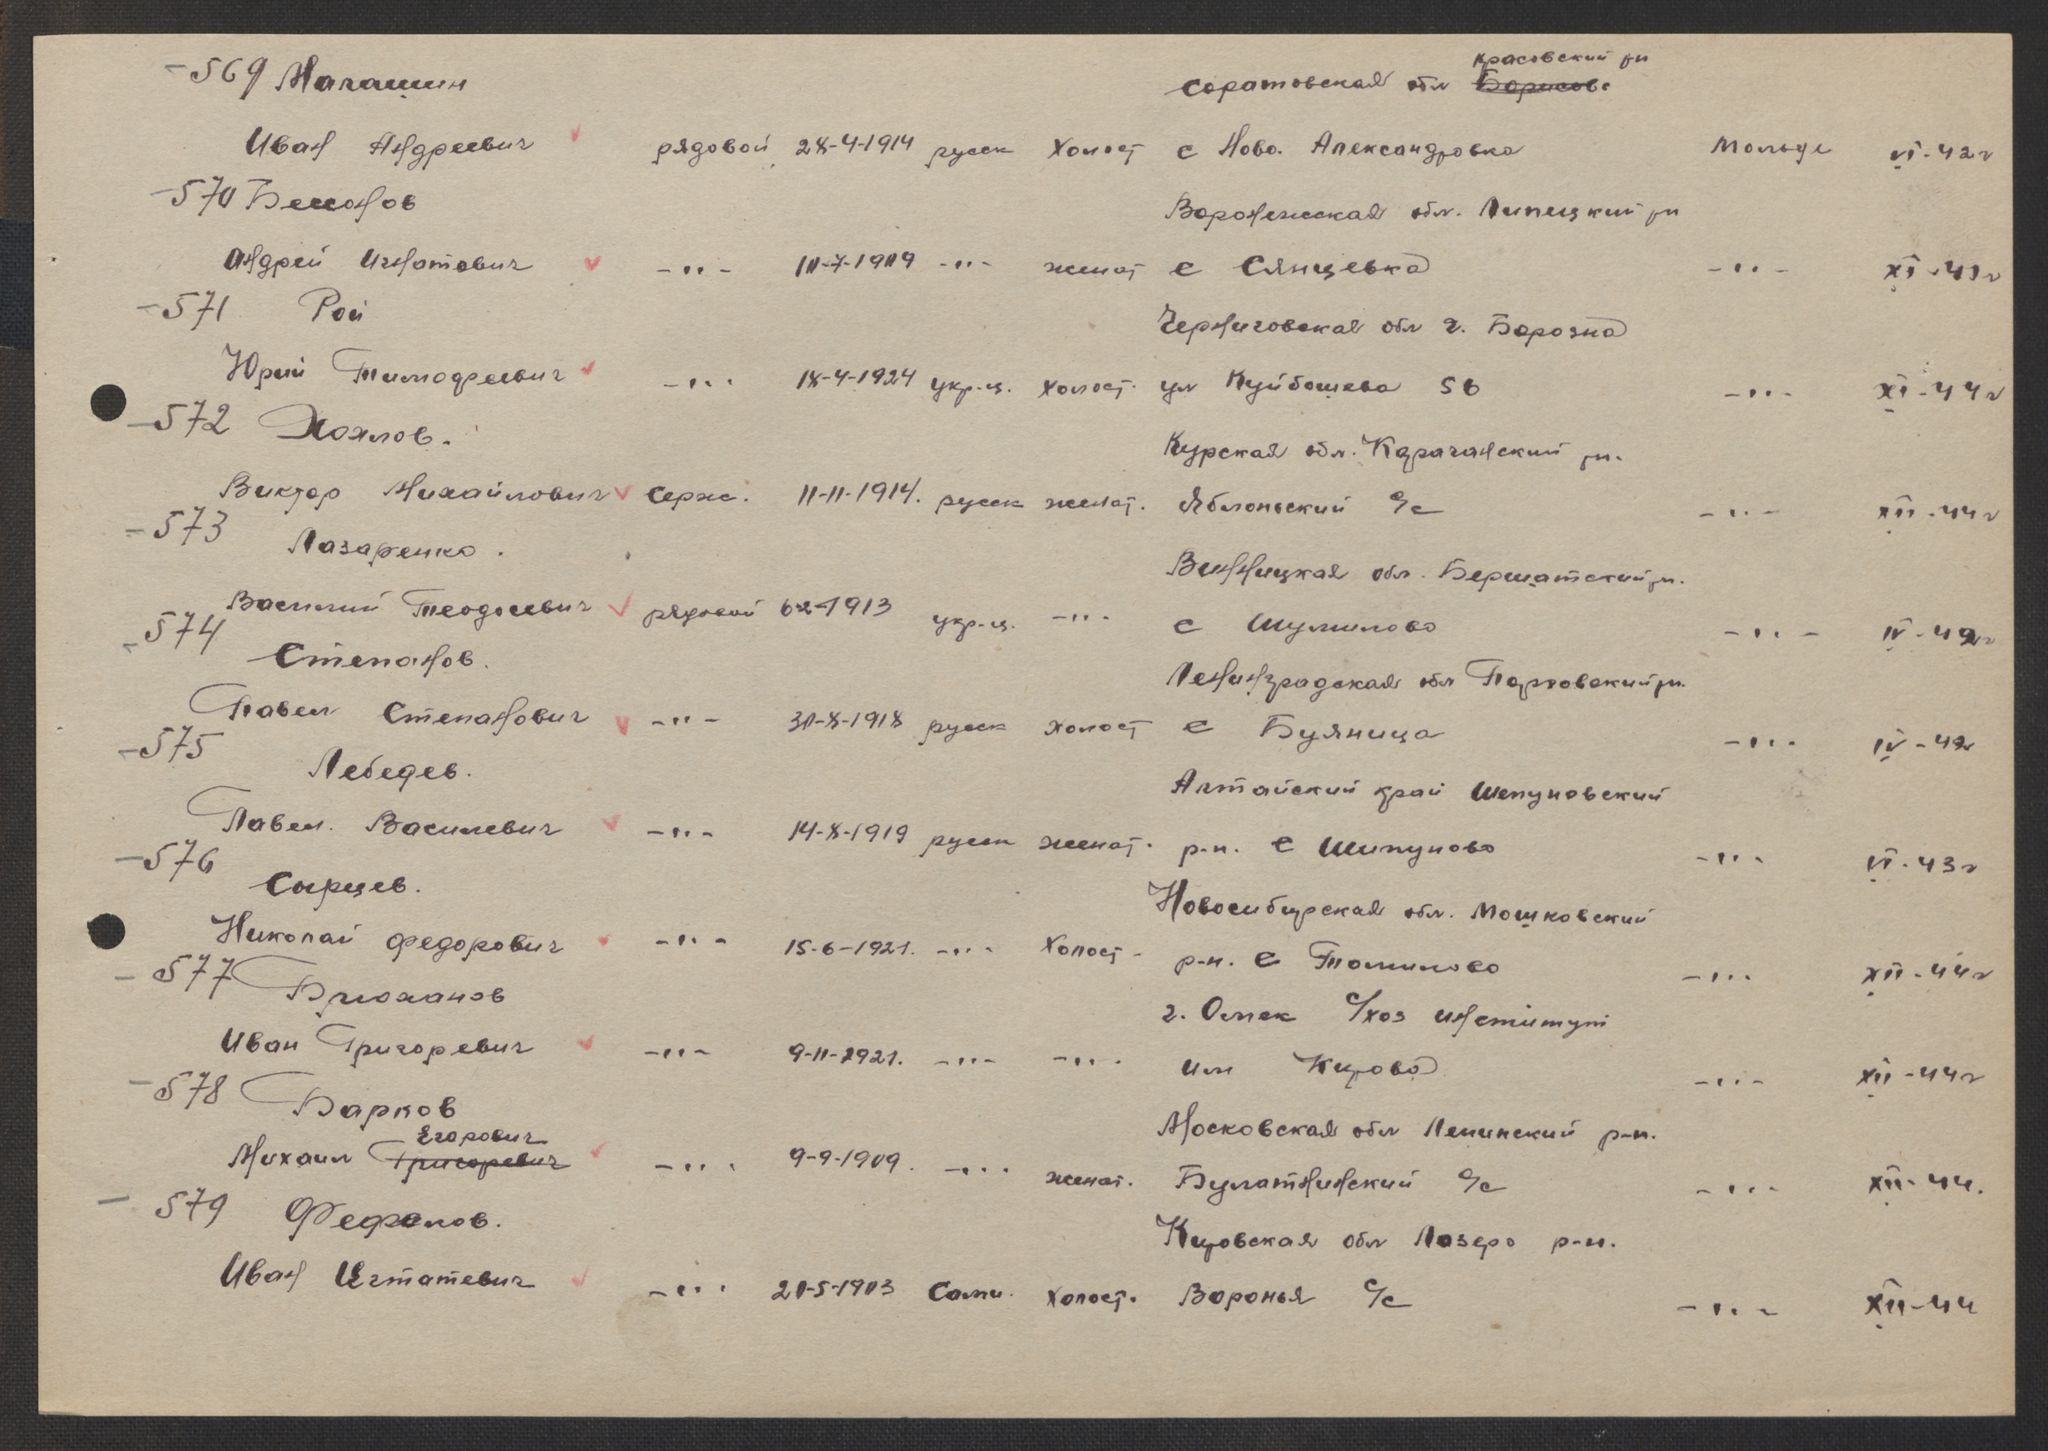 красовский рн
-569 Магашин саратовская обл Борисовс
Иван Андреевич рядовой 28-4-1914 русск Холост с Ново. Александровка Мольде VI-42г
-570 Беленов Воронежская обл. Липецкий рн
Андрей Игнатович -"- 10-7-1909 -"- женат с Сянцевка -"- XI-41г
-571 Рой Черниговская обл г. Борозна
Юрий Тимофеевич -"- 18-4-1924 укр-ц. холост. ул Куйбошева 56 -"- XI-44г
-572 Хохлов. Курская обл. Карачанский рн.
Виктор Михайлович серж. 11-11-1914. русск женат. Яблоньский с/с -"- XII-44г
-573 Лазаренко. Винницкая обл. Бершатский рн.
Василий Теодосевич рядовой 6-2-1913 укр-ц. -"- с Шумилово -"- IV-42г
-574 Степанов. Ленинградская обл Парховский рн.
Павел Степанович -"- 30-8-1918 русск холост с Буяница -"- IV-42г
-575 Лебедев. Алтайский край Шепуновский
Павел. Василевич -"- 14-8-1919 русск женат. р-н. с Шипуново -"- VI-43г
-576 Сырцев. Новосибирская обл. Мошковский
Николай Федорович -"- 15-6-1921. -"- Холост- р-н. с Томилово -"- XII-44г
-577 Брюханов г. Омск с/хоз институт
Иван Григоревич -"- 9-11-1921. -"- -"- им Кирова -"- XII-44г
-578 Барков Московская обл Ленинский р-н.
Егорович
Михаил Григоревич -"- 9-9-1909. -"- женат. Булатнинский с/с -"- XII-44.
-579 Фефелов. Кировская обл Лазеро р-н.
Иван Игнатевич -"- 20-5-1903 Сами. Холост. Воронья с/с -"- XII-44